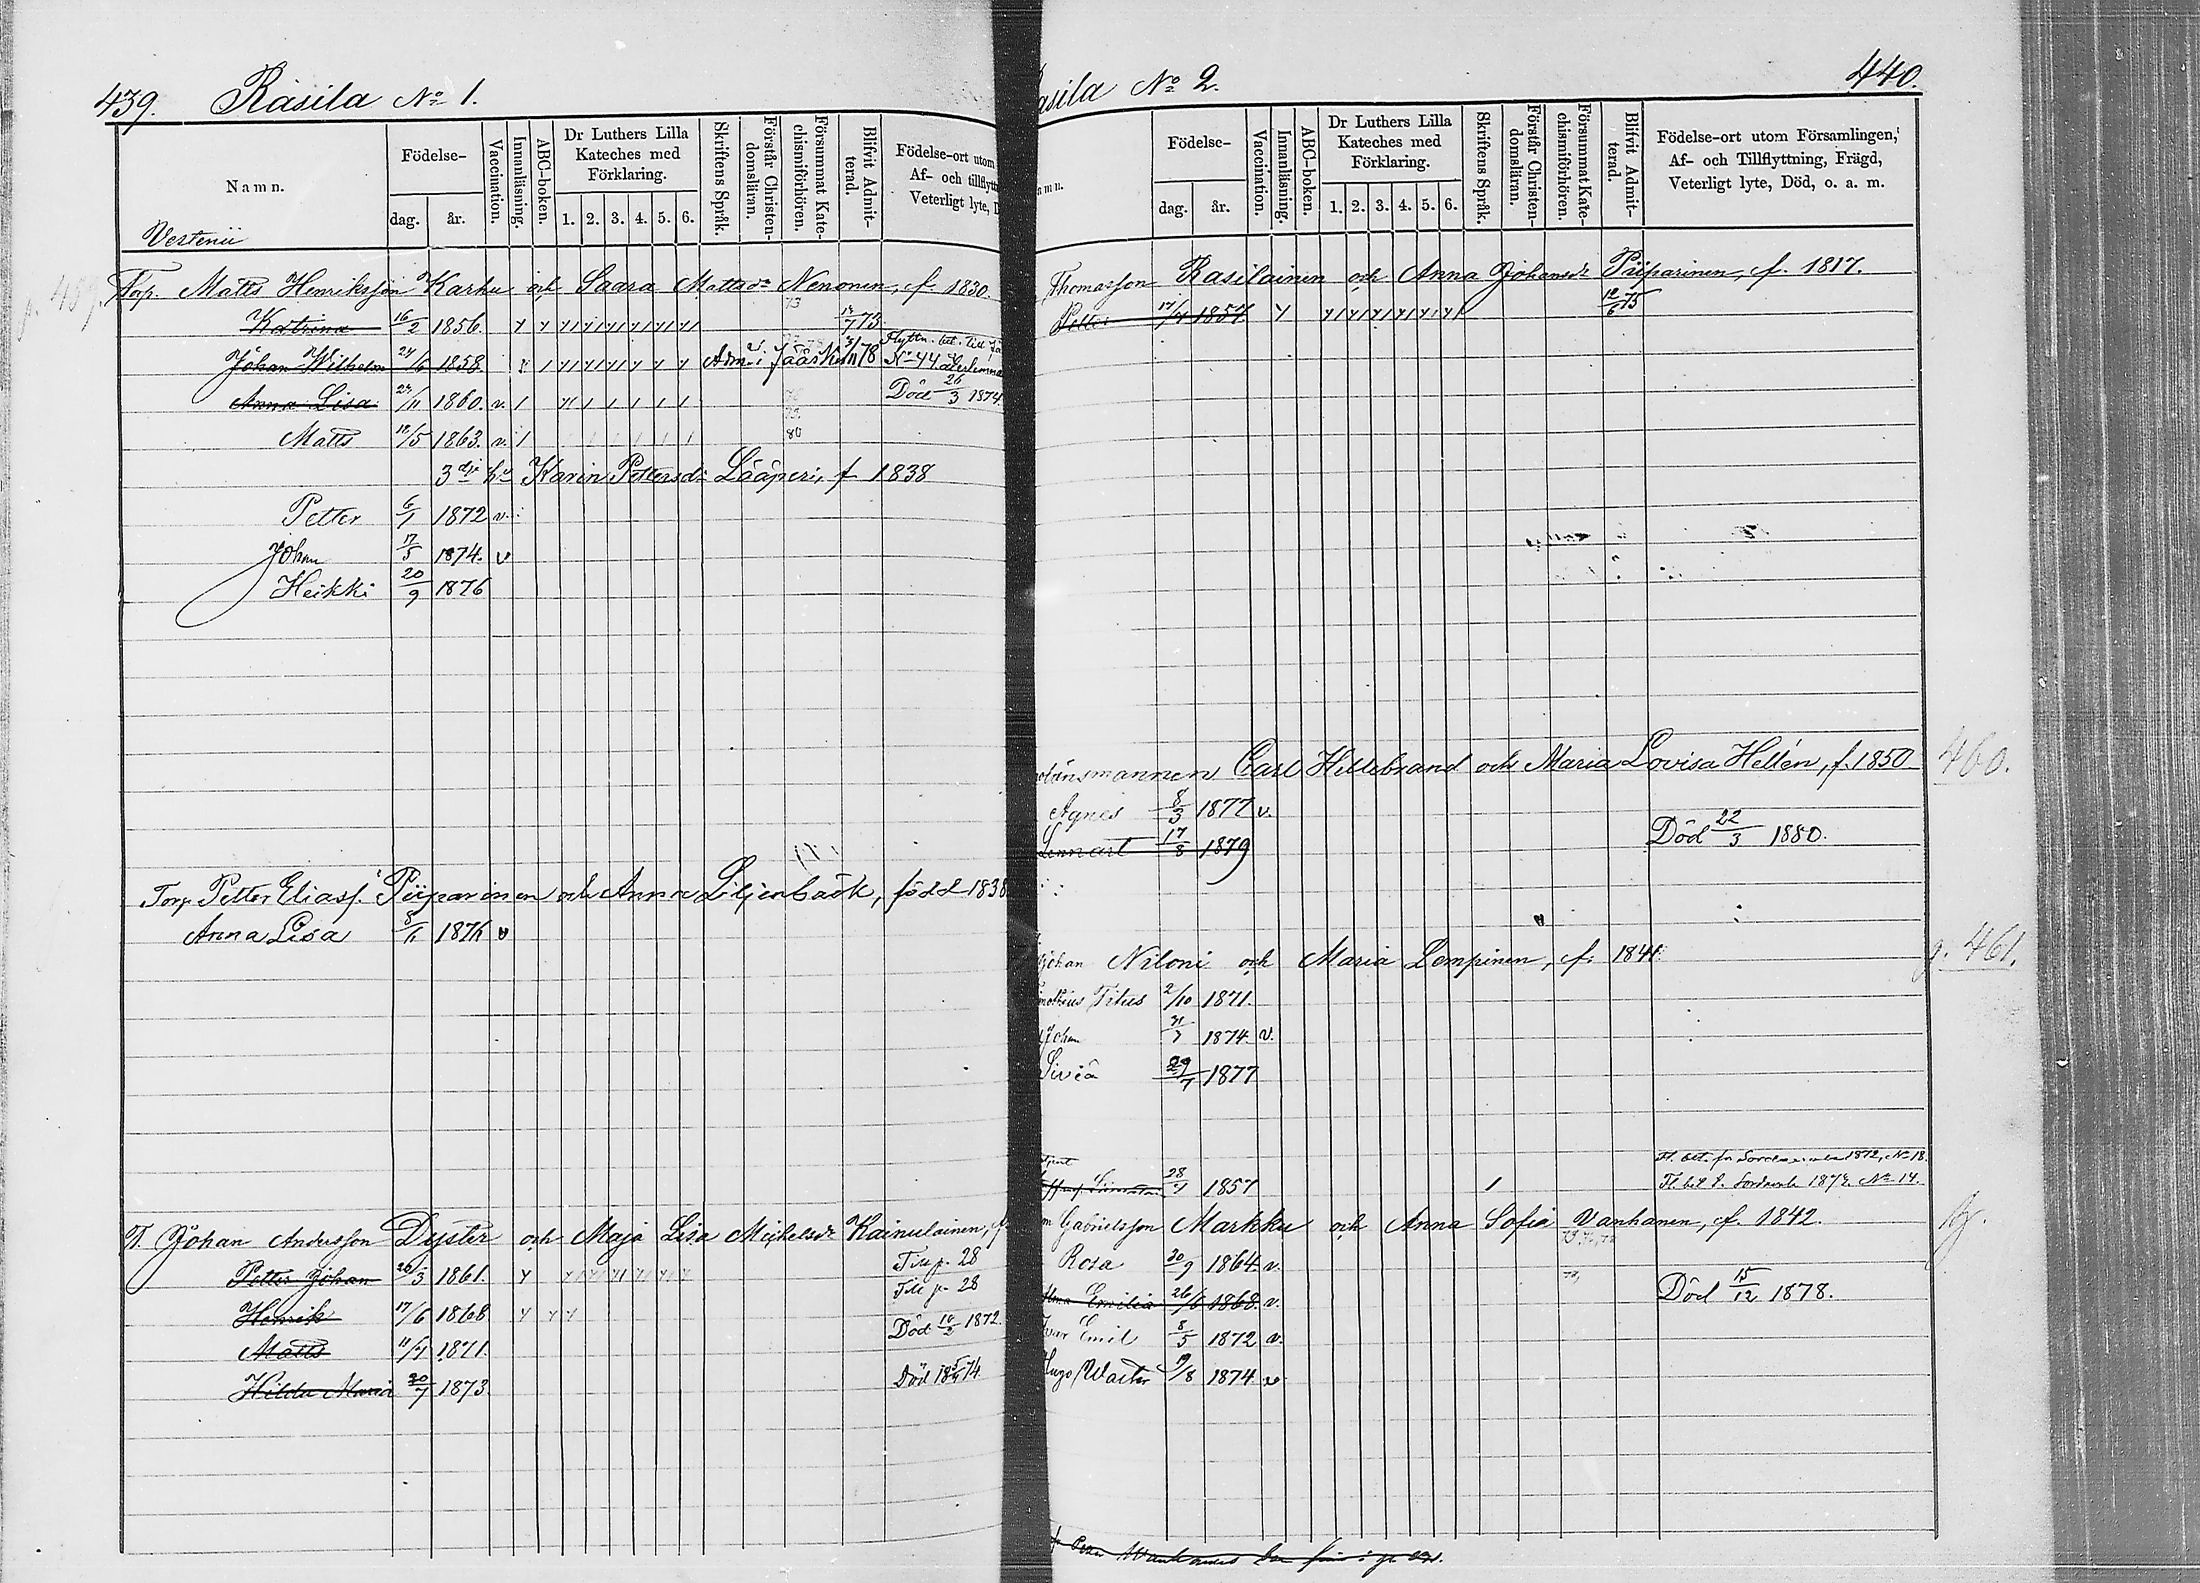 439. Rasila No 1.
Namn.
Födelse-
dag. år.
Vaccination.
Innanläsning.
ABC-boken.
Dr Luthers Lilla Kateches med Förklaring.
1. 2. 3. 4. 5. 6.
Skriftens Språk.
Förstår Christendomsläran.
Försummat Katechismiförhören.
Blifvit Admitterad.
Födelse-ort utom
Af- och tillflytt
Veterligt lyte, D
Vestenii
Torp. Matts Henriksson Karhu och Saara Mattsdr Nenonen, f. 1830.
Katrina 16/2 1856. 73
Johan Wilhelm 24/6 1858. Adm. i Jääskis 78 Flyttn. bet. till No 44
Anna Lisa 24/11 1860. v. Död 26/3 1874.
Matts 12/5 1863. v. 80
3dje h. Karin Pettersdr Lääperi, f 1838
Petter 6/1 1872 v.
Johan 17/5 1874. v
Heikki 20/9 1876
Torp. Petter Eliasf. Piiparinen och Anna Liljenbäck, född 1838
Anna Lisa 8/11 1876 v
T. Johan Andersson Dyster och Maja Lisa Michelsdr Kainulainen, f.
Petter Johan 26/3 1861. Till p. 28
Henrik 17/6 1868 Till p. 28
Matts 11/7 1871 Död 10/2 1872.
Hilda Maria 20/7 1873 Död 18 74.
asila No 2. 440.
amn.
Födelse-
dag. år.
Vaccination.
Innanläsning.
ABC-boken.
Dr Luthers Lilla Kateches med Förklaring.
1. 2. 3. 4. 5. 6.
Skriftens Språk.
Förstår Christendomsläran.
Försummat Katechismiförhören.
Blifvit Admitterad.
Födelse-ort utom Församlingen,
Af- och Tillflyttning, Frägd,
Veterligt lyte, Död, o. a. m.
Thomasson Rasilainen och Anna Johansdr Piiparinen, f. 1817.
Petter 17/4 1857 12/6 75
länsmannen Carl Hillebrand och Maria Lovisa Hellén, f. 1850 460.
Agnes 8/3 1877 v.
Lennart 17/8 1879 Död 22/3 1880.
Johan Niloni och Maria Lempinen, f. 1841. p. 461.
motheus Titus 2/10 1871.
Johan 1874. v.
Siviä 29/7 1877
28 1857 1 Fl. bet. fr. Sordavala 1872, No 18.
Fl. bet. t. Sordavala 1874. No 14.
Gabrielsson Markku och Anna Sofia Vanhanen, f. 1842.
Rosa 20/9 1864. v.
lma Emilia 26/6 1868. v. Död 15/12 1878.
Ivar Emil 8/5 1872 v.
Hugo Walter 9/8 1874 v